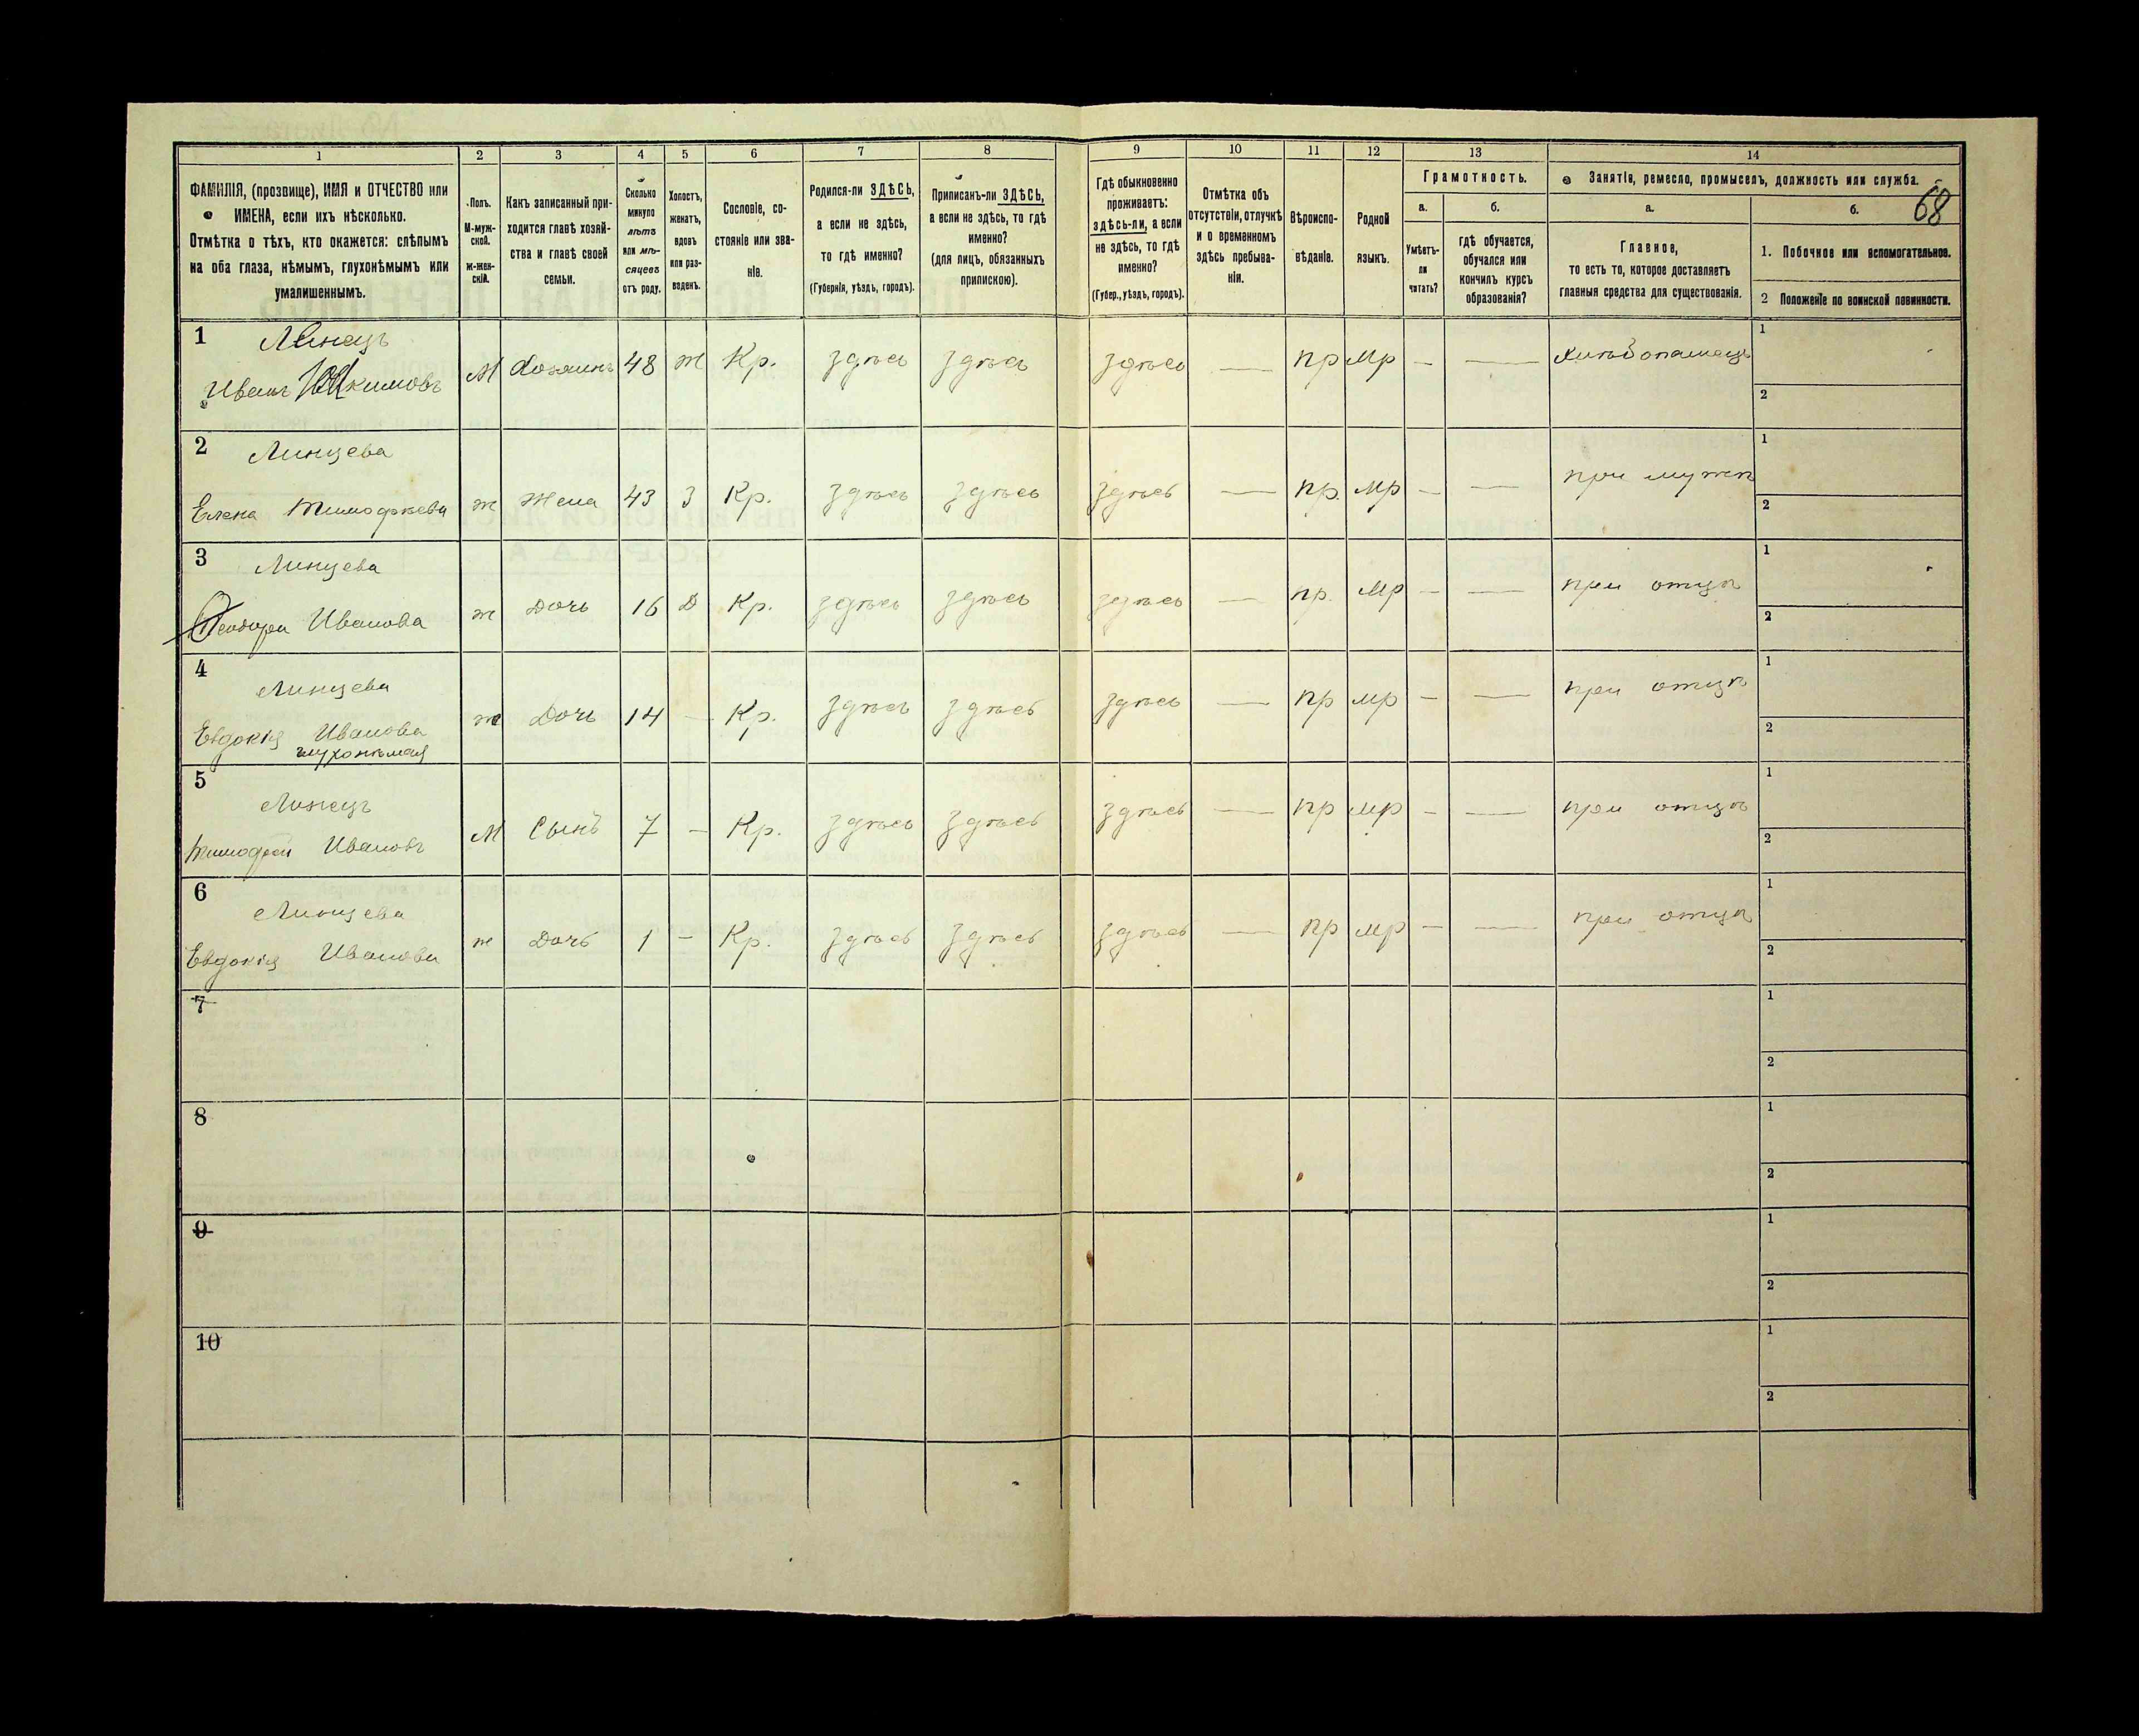 1 2 3 4 5 6 7 8 9 10 11 12 13 14
68
ФАМИЛІЯ, (прозвище), ИМЯ и ОТЧЕСТВО или
ИМЕНА, если ихъ нѣсколько.
Отмѣтка о тѣхъ, кто окажется: слѣпымъ
на оба глаза, нѣмымъ, глухонѣмымъ или
умалишеннымъ.
Полъ.
М-муж-
ской.
ж-жен-
скій.
Какъ записанный при-
ходится главѣ хозяй-
ства и главѣ своей
семьи.
Сколько
минуло
лѣтъ
или мѣ-
сяцевъ
отъ роду.
Холостъ,
женатъ,
вдовъ
или раз-
веденъ.
Сословіе, со-
стояніе или зва-
ніе.
Родился-ли ЗДѢСЬ,
а если не здѣсь,
то гдѣ именно?
(Губернія, уѣздъ, городъ).
Приписанъ-ли ЗДѢСЬ,
а если не здѣсь, то гдѣ
именно?
(для лицъ, обязанныхъ
припискою).
Гдѣ обыкновенно
проживаетъ:
здѣсь-ли, а если
не здѣсь, то гдѣ
именно?
(Губер., уѣздъ, городъ).
Отмѣтка объ
отсутствіи, отлучкѣ
и о временномъ
здѣсь пребыва-
ніи.
Вѣроиспо-
вѣданіе.
Родной
языкъ.
Грамотность.
а.
Умѣетъ-
ли
читать?
б.
гдѣ обучается,
обучался или
кончилъ курсъ
образованія?
Занятія, ремесло, промыселъ, должность или служба.
а.
Главное,
то есть то, которое доставляетъ
главныя средства для существованія.
б.
1. Побочное или вспомогательное.
2 Положеніе по воинской повинности.
1 Линецъ
Иванъ М Хозяинъ 48 ж Кр. здѣсь здѣсь здѣсь — пр мр - — Хлѣбопашецъ 1
2
2 Линцева
Елена Тимофеева ж Жена 43 З Кр. здѣсь здѣсь здѣсь — пр. мр - — при мужѣ 1
2
3 Линцева
Иванова ж Дочь 16 Д Кр. здѣсь здѣсь здѣсь — пр. мр - — при отцѣ 1
2
4 Линцева
Евдокія Иванова ж Дочь 14 - Кр. здѣсь здѣсь здѣсь — пр мр - — при отцѣ 1
глухонѣмая 2
5 Линецъ
Тимофей Ивановъ М Сынъ 7 - Кр. здѣсь здѣсь здѣсь — пр мр - — при отцѣ 1
2
6 Линцева
Евдокія Иванова ж Дочь 1 - Кр. здѣсь здѣсь здѣсь — пр мр - — при отцѣ 1
2
7 1
2
8 1
2
9 1
2
10 1
2